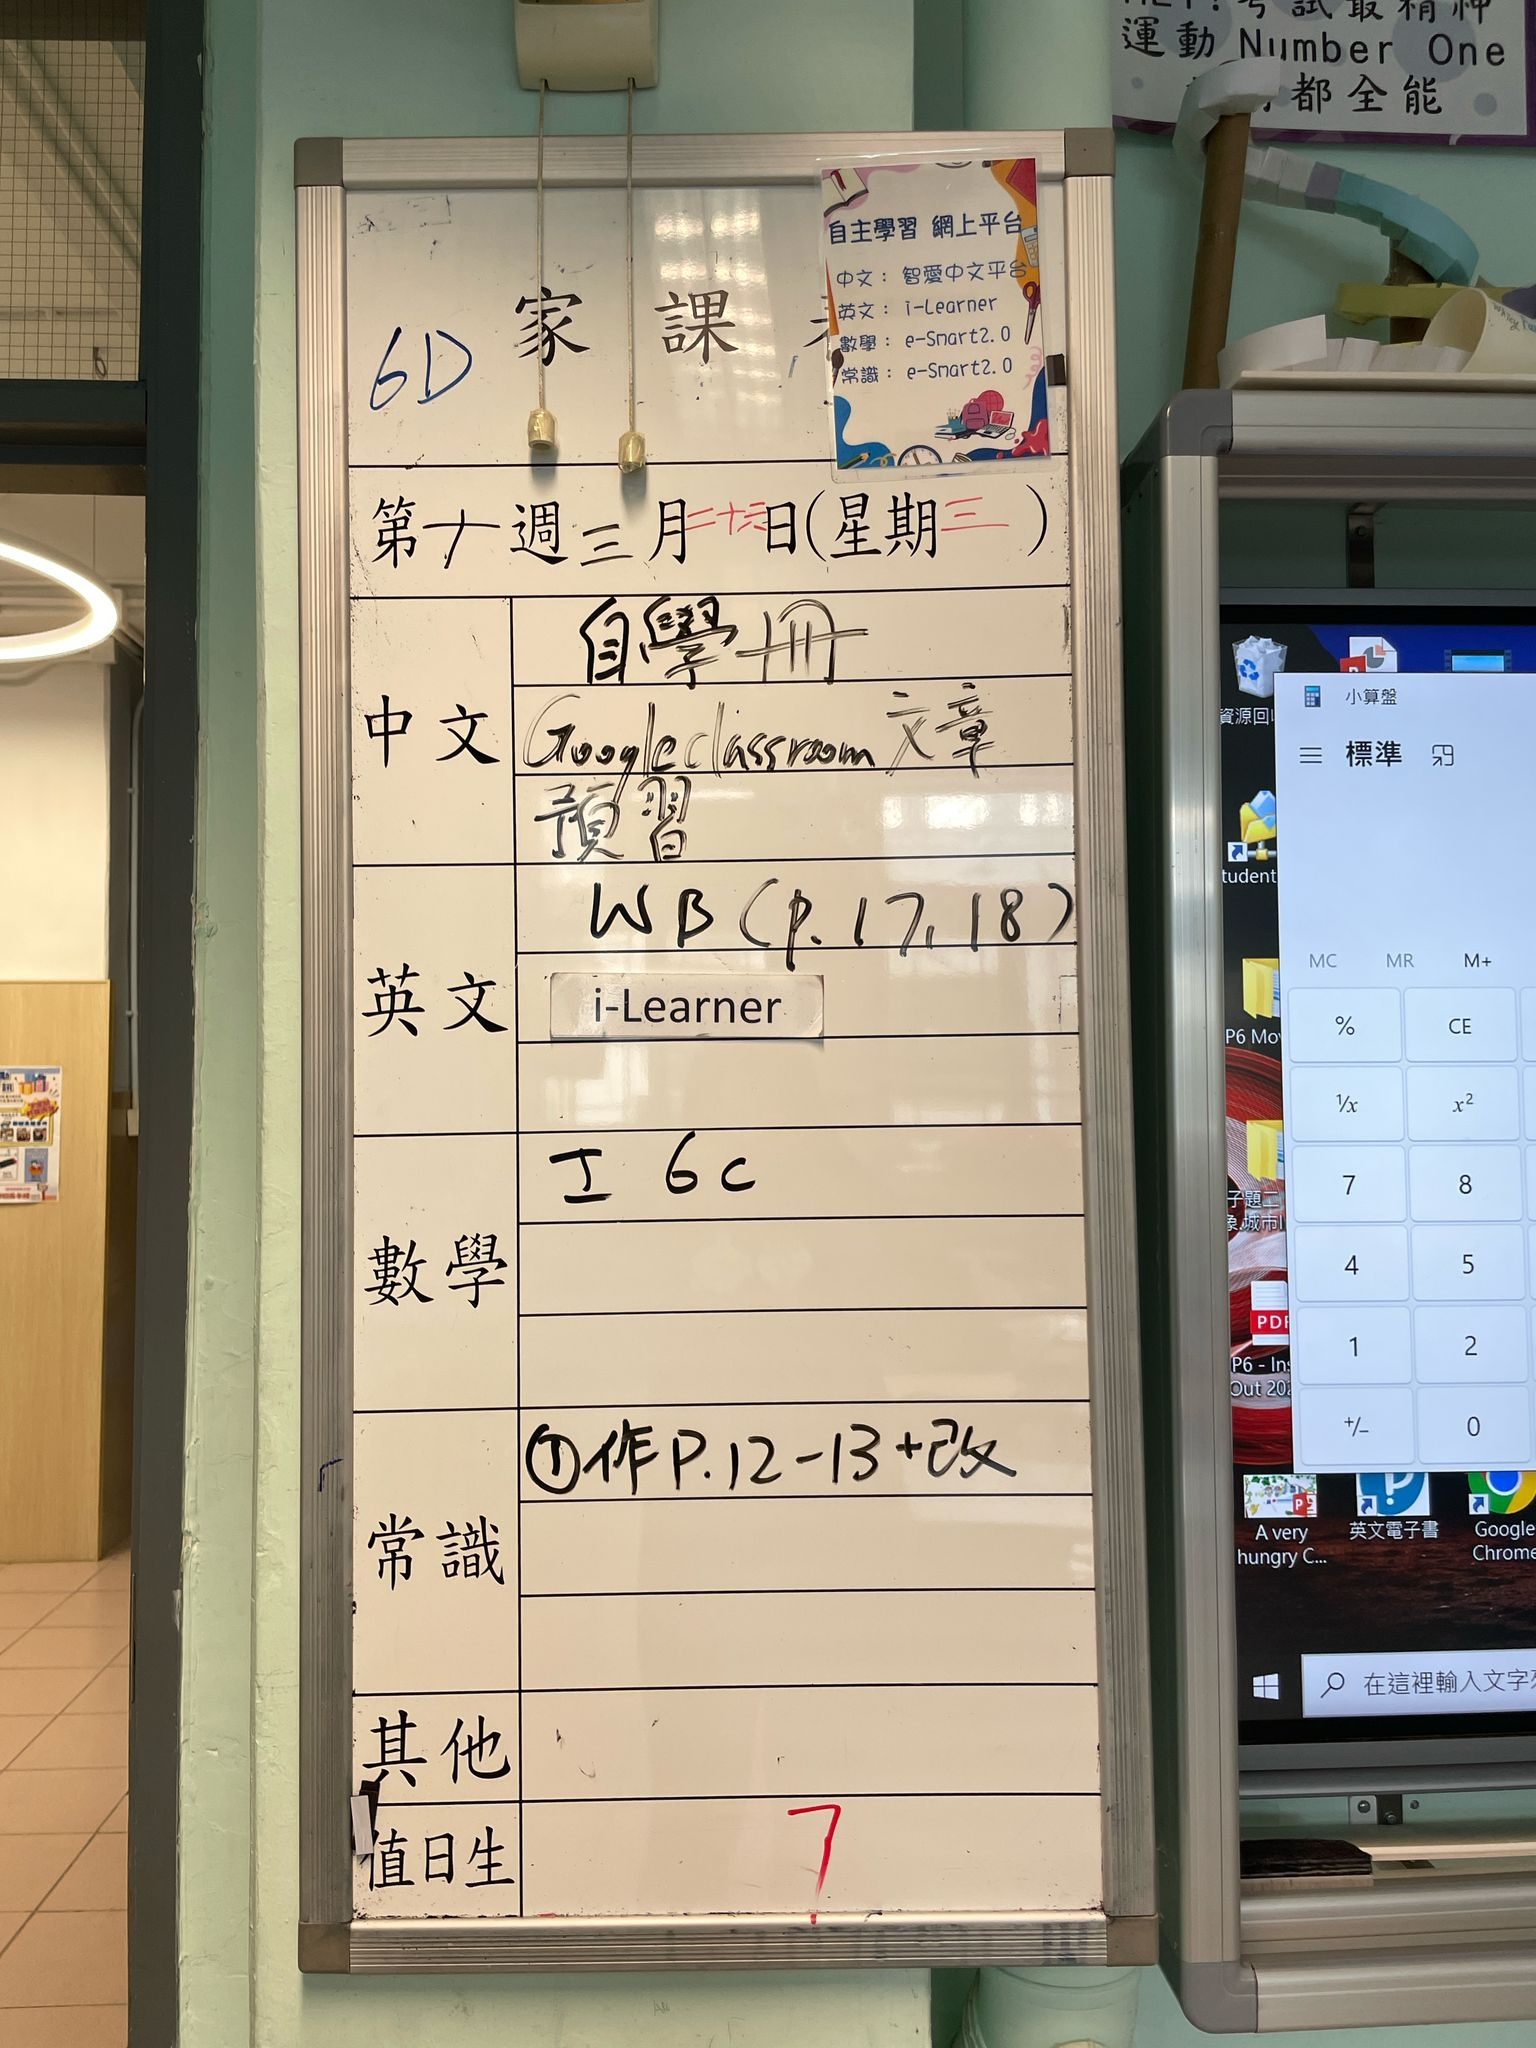 考試最精神
運動 Number One
都全能
自主學習 網上平台
中文： 智愛中文平台
英文： i-Learner
數學： e-Smart2.0
常識： e-Smart2.0
家 課
6D
第十週三月二十六日(星期三)
中文
自學冊
Google classroom 文章
預習
英文
WB (p. 17, 18)
i-Learner
數學
工 6c
常識
①作P.12-13+改
其他
值日生
7
小算盤
標準
MC MR M+
% CE
⅟x x²
7 8
4 5
1 2
+/- 0
資源回
tudent
P6 Mov
PDF
P6 - Ins
Out 202
A very
hungry C...
英文電子書
Google
Chrome
在這裡輸入文字